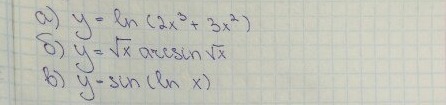 а) y = ln (2x³ + 3x²)
б) y = √x arcsin √x
в) y = sin (ln x)